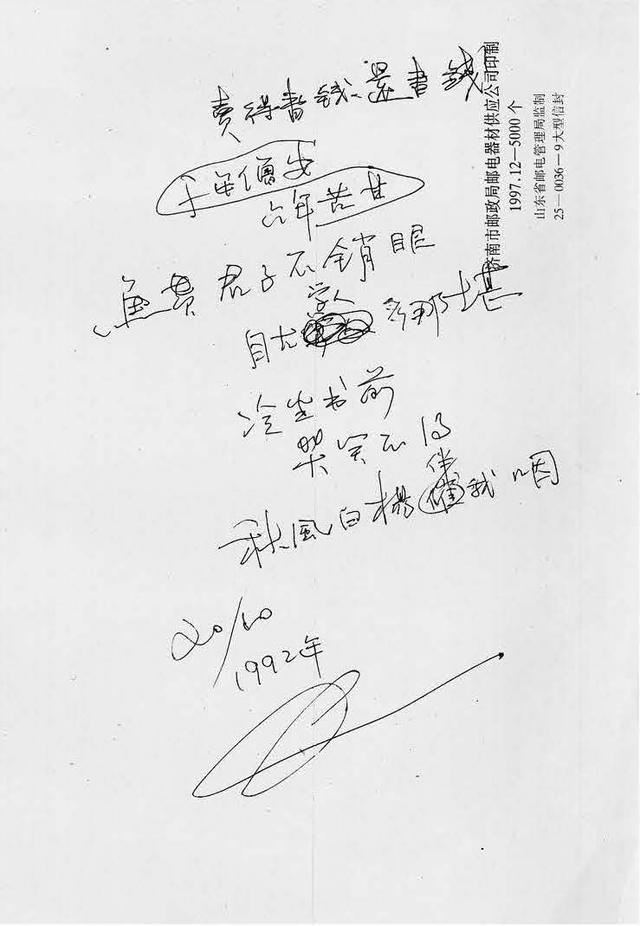 卖得书钱还书钱
六年苦甘
君子不销眼
自尤学人多那堪
冷坐书前
哭笑不得
秋风白杨伴我咽
20/10
1992年
济南市邮政局邮电器材供应公司印制
1997.12—5000个
山东省邮电管理局监制
25—0036—9大型信封